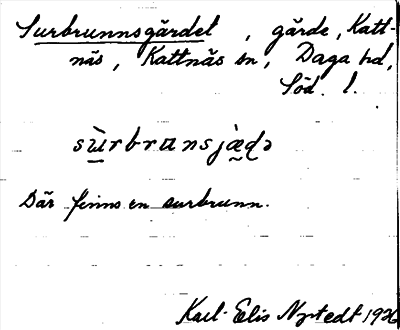 Surbrunnsgärdet, gärde, Katt-
näs, Kattnäs sn, Daga hd,
Söd. l.
sùrbrɑnsjæ̀ḍə
Där finns en surbrunn.
Karl-Elis Nystedt 1926